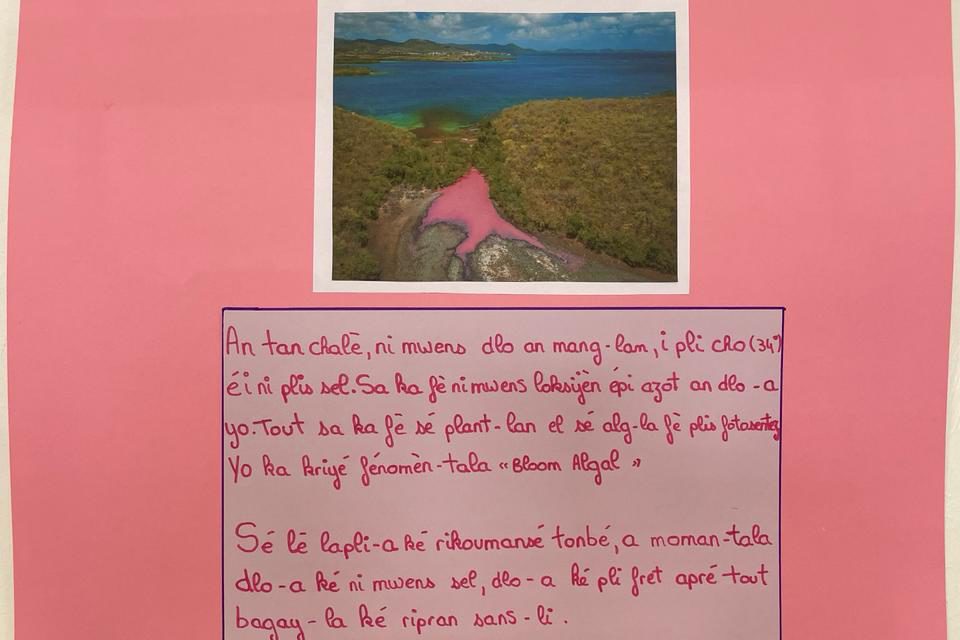 An tan chalè, ni mwens dlo an mang-lan, i pli cho (34°)
éi ni plis sel. Sa ka fè ni mwens loksijèn épi azot an dlo-a
yo. Tout sa ka fè sé plant-lan el sé alg-la fè plis fotosentez
Yo ka kriyé fénomèn-tala « Bloom Algal »
Sé lè lapli-a ké rikoumansé tonbé, a moman-tala
dlo-a ké ni mwens sel, dlo-a ké pli fret apré tout
bagay-la ké ripran sans-li.